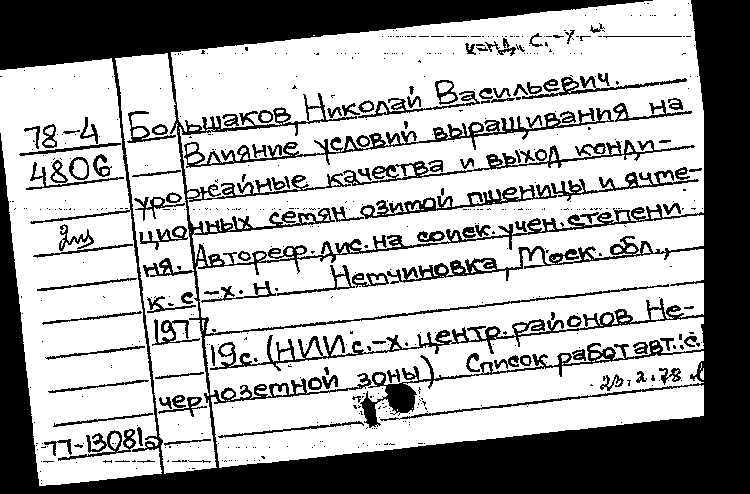 канд. с.-х. н.
78-4
4806
2 экз
77-13081
Большаков, Николай Васильевич.
Влияние условий выращивания на
урожайные качества и выход конди-
ционных семян озимой пшеницы и ячме-
ня. Автореф. дис. на соиск. учен. степени
к. с.-х. н. Немчиновка, Моск. обл.,
1977.
19с. (НИИ с.-х. центр. районов Не-
черноземной зоны). Список работ авт.: с.
78